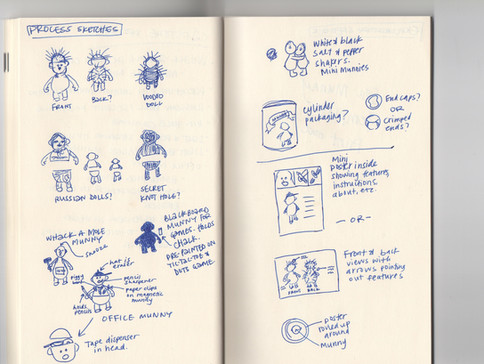 PROCESS SKETCHES
FRONT
BACK?
VOODOO
DOLL
RUSSIAN DOLLS?
SECRET
KNOT HOLE?
WHACK A MOLE
MUNNY
BLACKBOARD
MUNNY FOR
GAMES. HOLDS
CHALK.
PRE-PAINTED ON
TIC-TAC-TOE &
DOTS GAME.
hat
eraser
pencil
sharpener
paper clips
on magnetic
munny
holds
pencils
OFFICE MUNNY
Tape dispenser
in head.
White & black
salt & pepper
shakers.
Mini Munnies
cylinder
packaging?
End caps?
OR
Crimped
ends?
Mini
poster inside
showing features,
instructions
about, etc.
- OR -
Front & back
views with
arrows pointing
out features
FRONT
BACK
poster
rolled up
around
munny